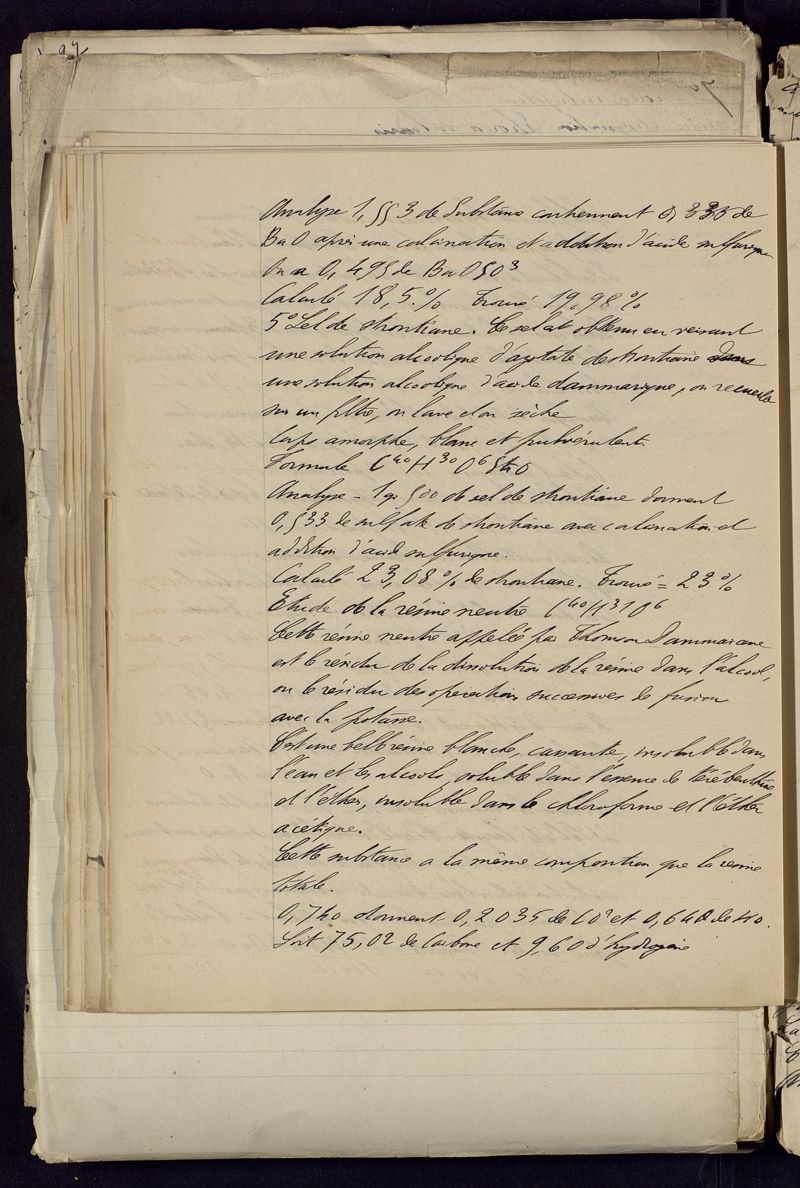 97
Analyse 1,553 de Substance contiennent 0,325 de
BaO après une calcination et addition d'acide sulfurique
On a 0,495 de BaOSO³
Calculé 18,5 % Trouvé 19,98 %
5° Sel de strontiane. Ce sel est obtenu en versant
une solution alcoolique d'azotate de strontiane dans
une solution alcoolique d'acide dammarique, on recueille
sur un filtre, on lave et on sèche
Corps amorphe, blanc et pulvérulent.
Formule C⁴⁰H³⁰O⁶StO
Analyse - 1 gr 500 de sel de strontiane donnent
0,533 de sulfate de strontiane avec calcination et
addition d'acide sulfurique.
Calculé 23,08 % de strontiane. Trouvé = 23 %
Etude de la résine neutre C⁴⁰H³1O⁶
Cette résine neutre appelée par Thomson Dammarane
est le résidu de la dissolution de la résine dans l'alcool,
ou le résidu des operations successives de fusion
avec la potasse.
C'est une belle résine blanche, cassante, insoluble dans
l'eau et les alcools, soluble dans l'essence de térébenthine
et l'éther, insoluble dans le chloroforme et l'éther
acétique.
Cette substance a la même composition que la resine
totale.
0,740 donnent 0,2035 de CO² et 0,640 de HO.
Soit 75,02 de Carbone et 9,60 d'hydrogène